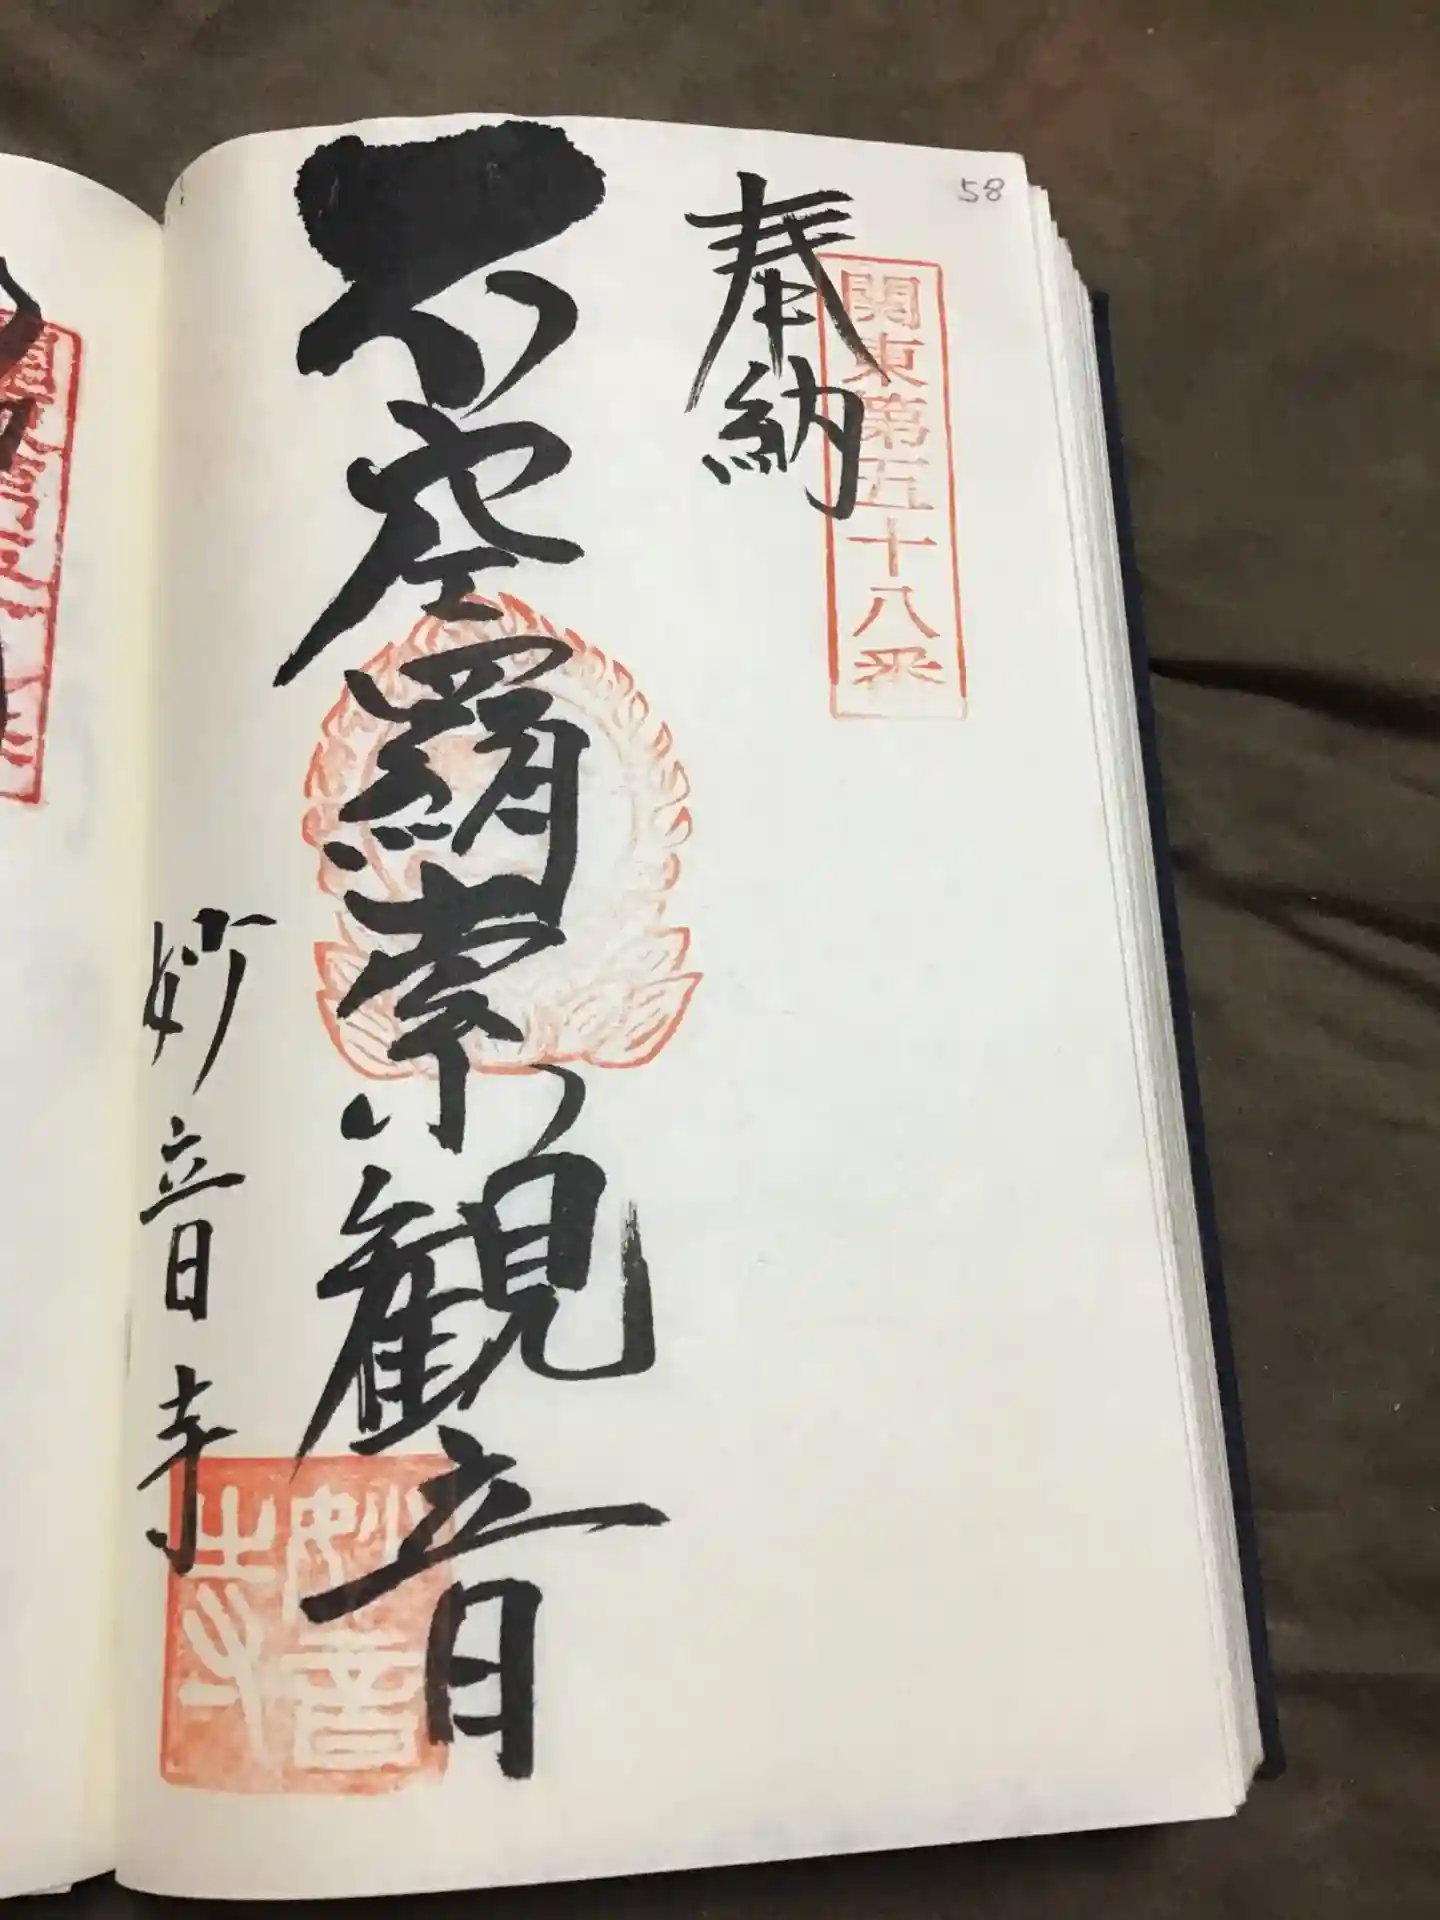 58
関東第五十八番
奉納
不空羂索観音
妙音寺
妙音寺